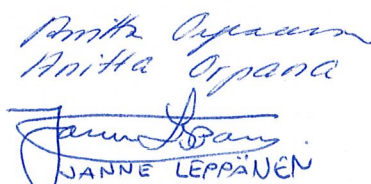 Anitta Orpana
Anitta Orpana
JANNE LEPPÄNEN